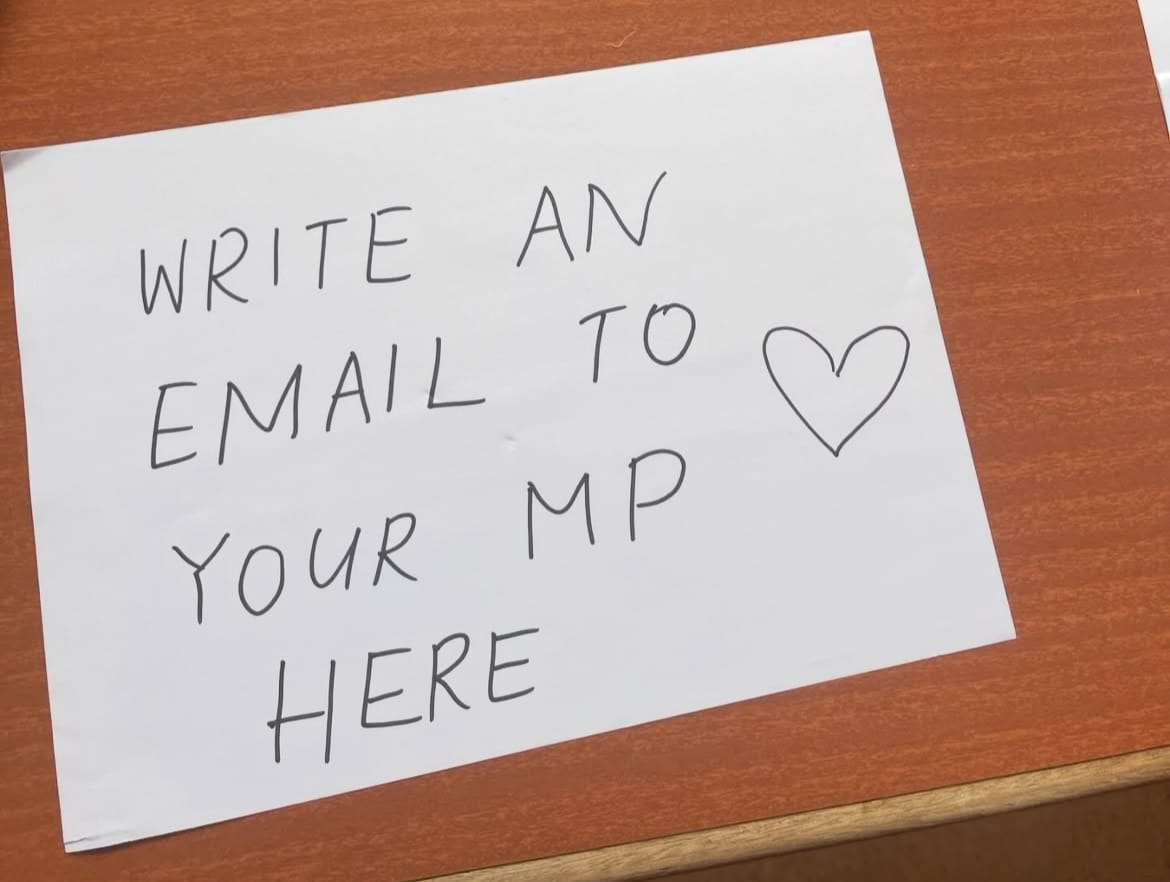 WRITE AN
EMAIL TO
YOUR MP
HERE